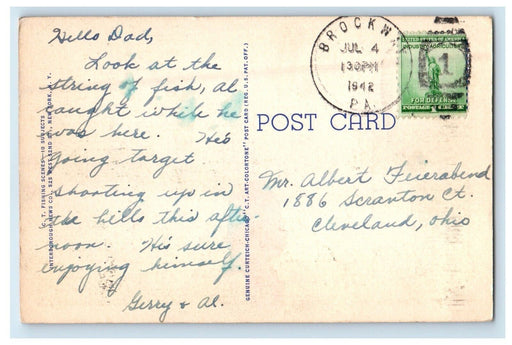 Hello Dad,
Look at the
string of fish, Al
caught while he
was here. He's
going target
shooting up in
the hills this after-
noon. His sure
enjoying himself.
Gerry & Al.
C. T. FISHING SCENES—10 SUBJECTS
GENUINE CURTEICH-CHICAGO "C. T. ART-COLORTONE" POST CARD (REG. U.S. PAT. OFF.)
POST CARD
BROCKW
JUL 4
1 30 PM
1942
PA.
UNITED STATES OF AMERICA
INDUSTRY AGRICULTURE
FOR DEFENSE
POSTAGE 1¢
1
Mr. Albert Feierabend
1886 Scranton Ct.
Cleveland, Ohio